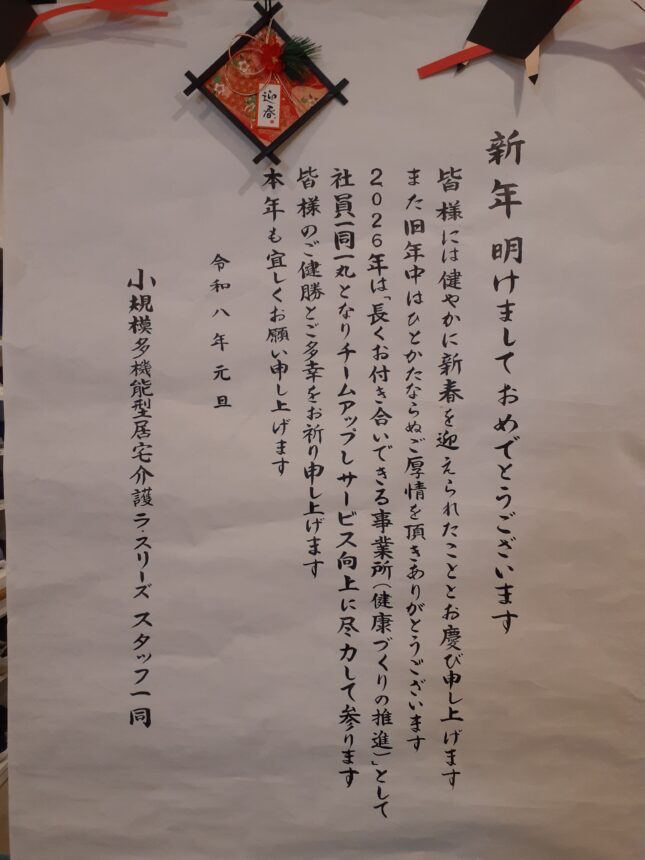 迎春
新年 明けまして おめでとうございます
皆様には健やかに新春を迎えられたこととお慶び申し上げます
また旧年中はひとかたならぬご厚情を頂きありがとうございます
2026年は「長くお付き合いできる事業所(健康づくりの推進)」として
社員一同一丸となりチームアップしサービス向上に尽力して参ります
皆様のご健勝とご多幸をお祈り申し上げます
本年も宜しくお願い申し上げます
令和八年元旦
小規模多機能型居宅介護ラ・スリーズ スタッフ一同